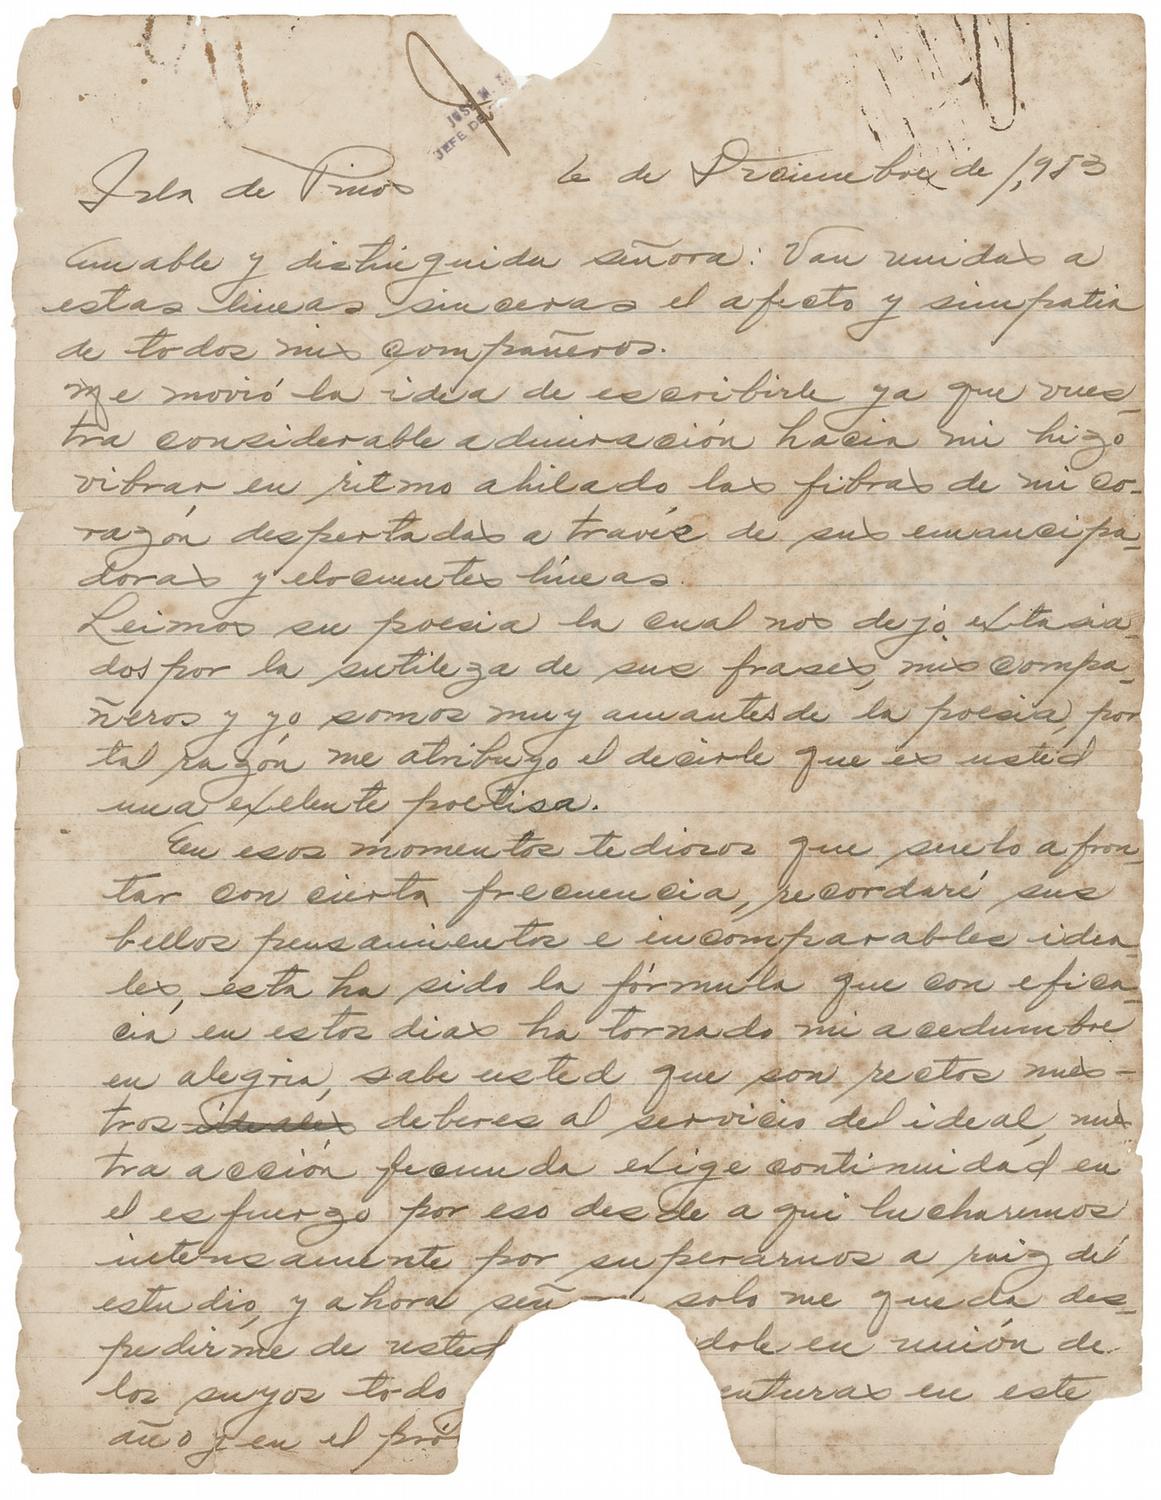 JOSE M.
JEFE DE
Isla de Pinos 6 de Diciembre de 1,953
Amable y distinguida señora: Van unidas a
estas lineas sinceras el afecto y simpatia
de todos mis compañeros.
Me movió la idea de escribirle ya que vues-
tra considerable admiración hacia mi hizo
vibrar en ritmo ahilado las fibras de mi co-
razón despertadas a través de sus emancipa-
doras y elocuentes líneas.
Leimos su poesia la cual nos dejó extasia-
dos por la sutileza de sus frases, mis compa-
ñeros y yo somos muy amantes de la poesia, por
tal razón me atribuyo el decirle que es usted
una exelente poetisa.
En esos momentos tediosos que suelo afron-
tar con cierta frecuencia, recordaré sus
bellos pensamientos e incomparables idea-
les, esta ha sido la fórmula que con efica-
cia en estos dias ha tornado mi acedumbre
en alegria, sabe usted que son rectos nues-
tros ideales deberes al servicio del ideal, nues
tra acción fecunda exige continuidad en
el esfuerzo por eso desde aqui lucharemos
intensamente por superarnos a raiz del
estudio, y ahora señ solo me queda des-
pedirme de usted dole en unión de
los suyos todo enturas en este
año y en el pró